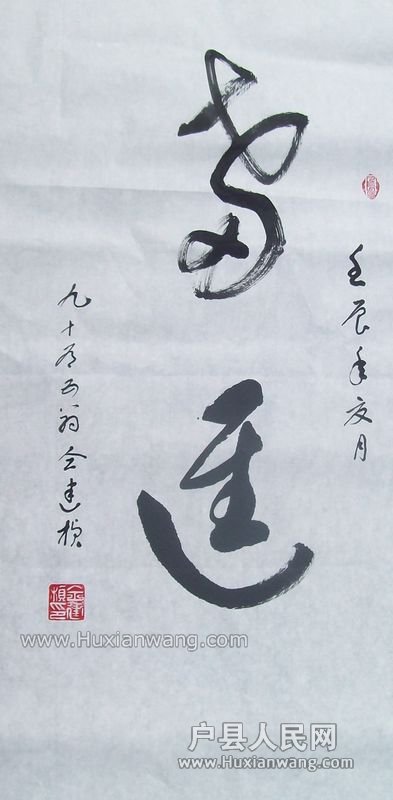 壬辰年夏月
奮進
九十有五翁
www.Huxianwang.com
户县人民网
www.Huxianwang.com